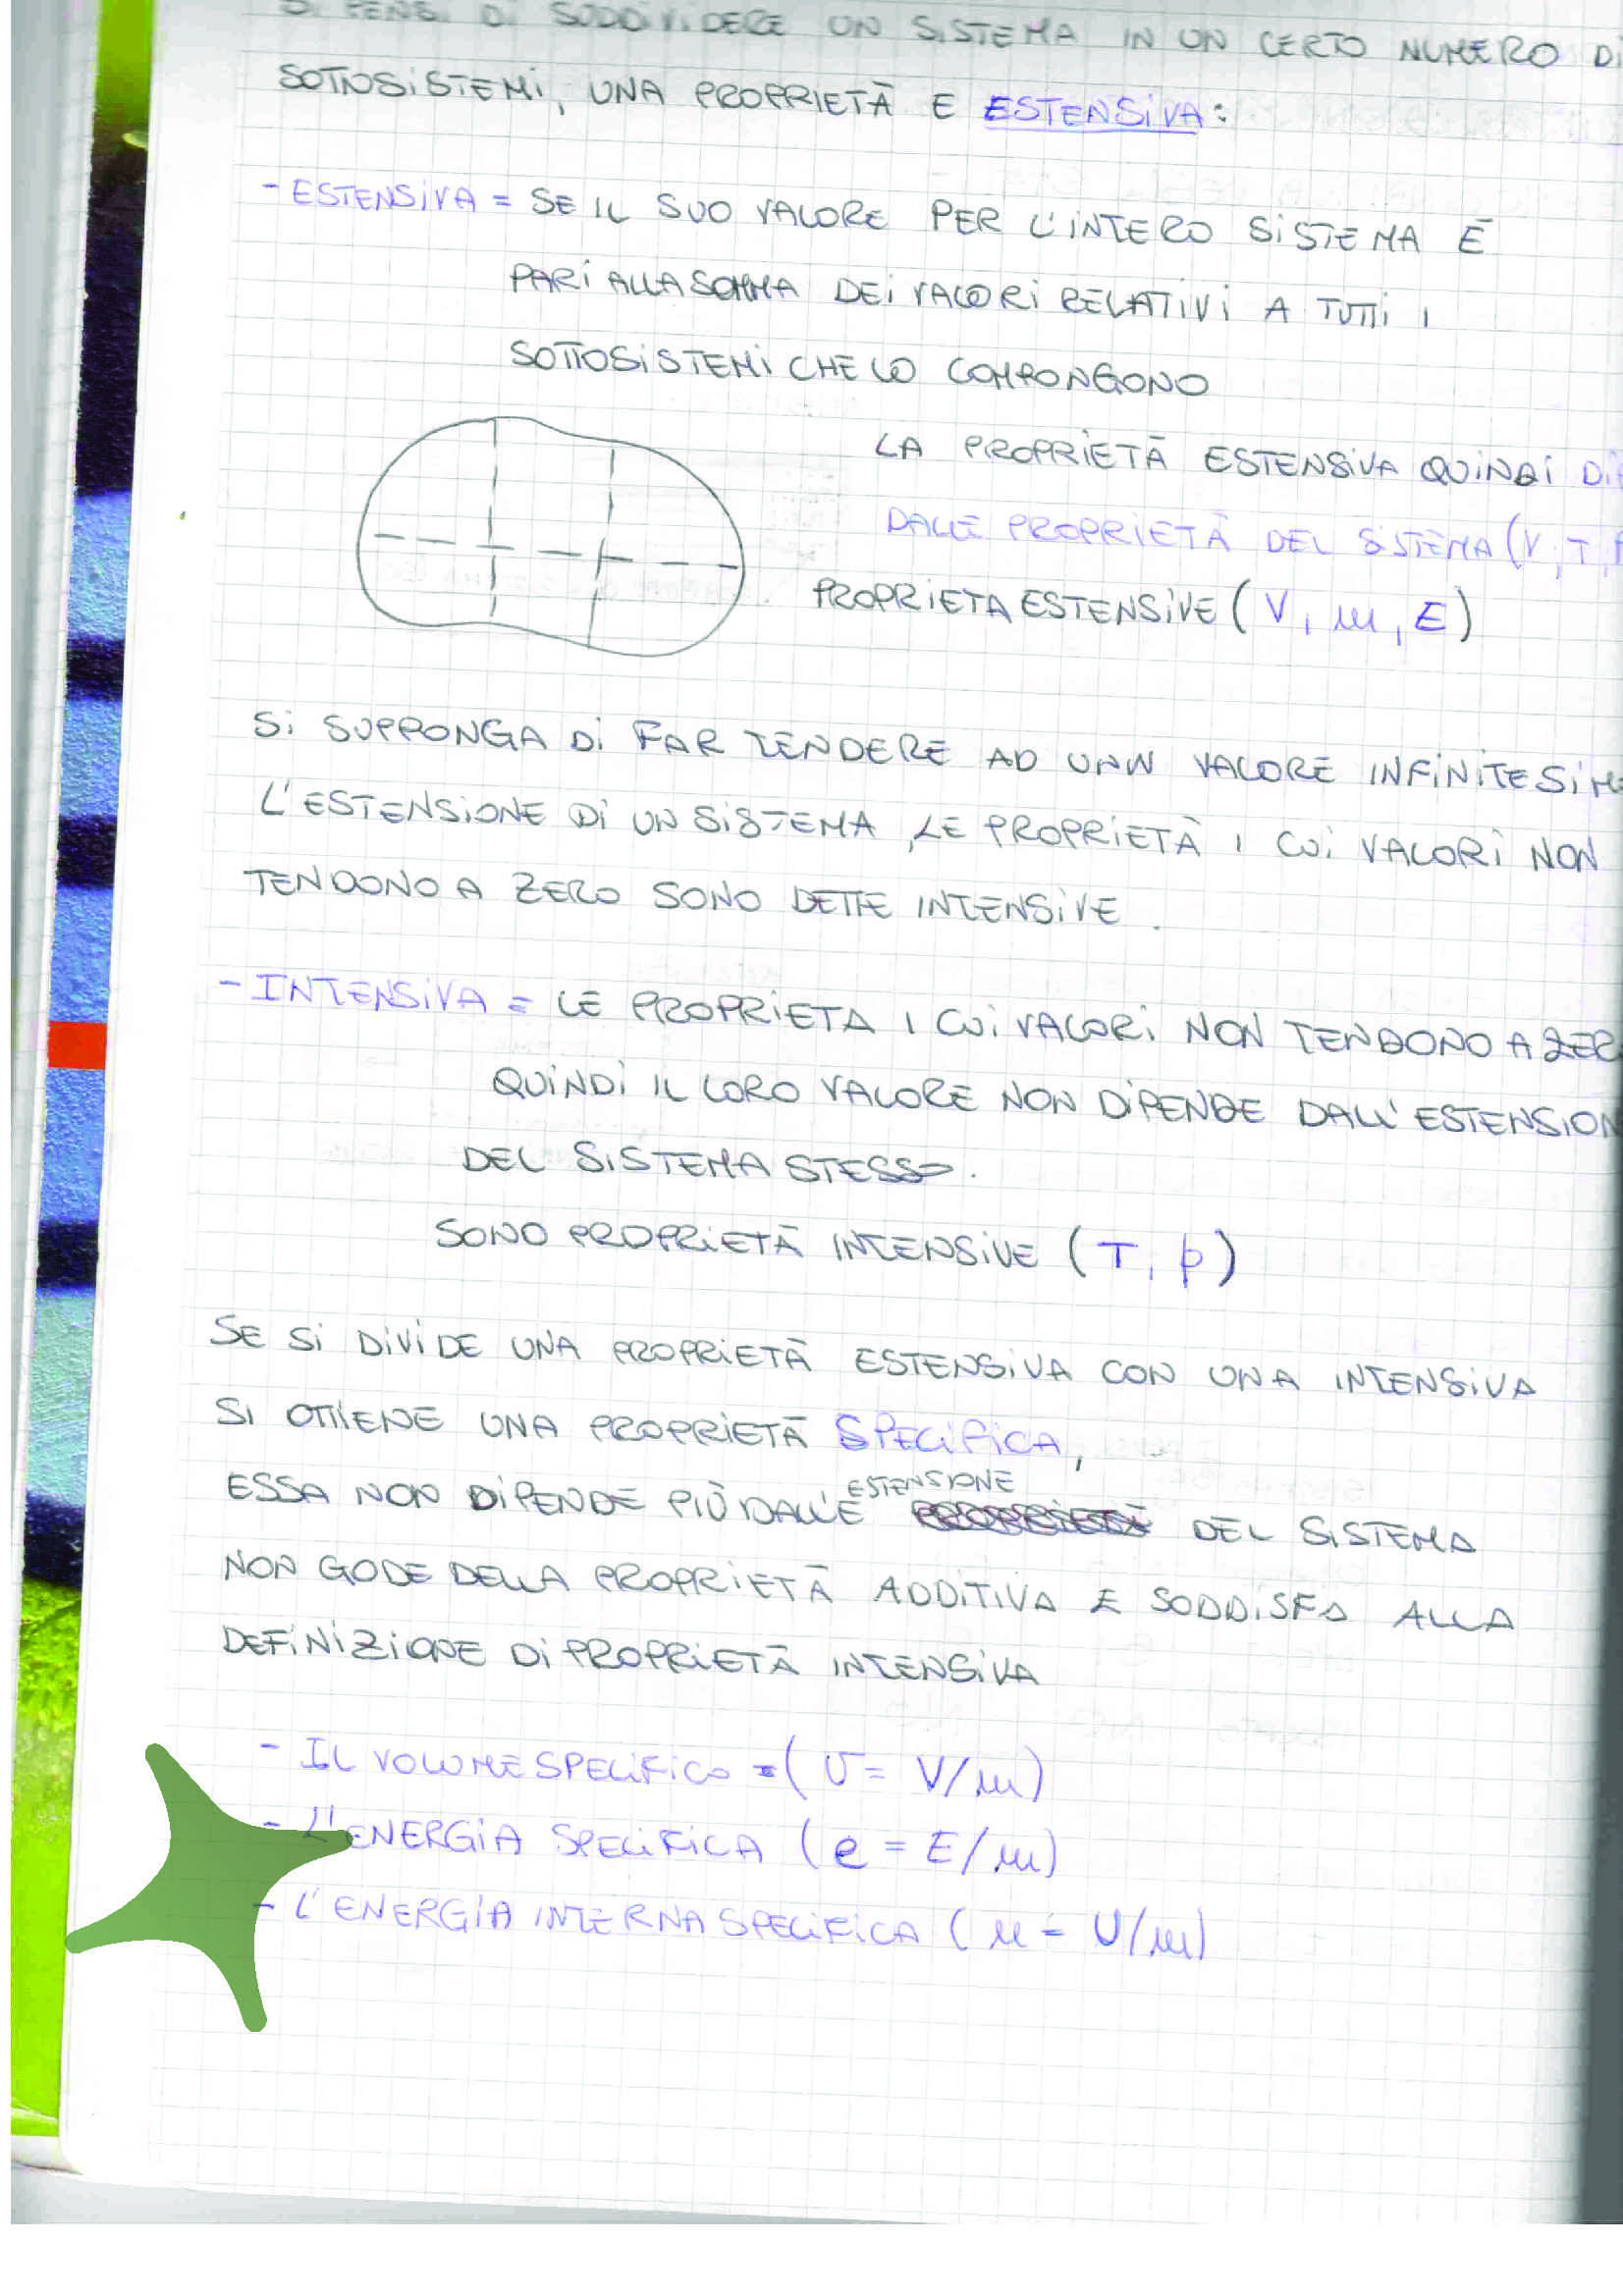 SI PENSI DI SUDDIVIDERE UN SISTEMA IN UN CERTO NUMERO DI
SOTTOSISTEMI, UNA PROPRIETÀ E ESTENSIVA:
- ESTENSIVA = SE IL SUO VALORE PER L'INTERO SISTEMA È
PARI ALLA SOMMA DEI VALORI RELATIVI A TUTTI I
SOTTOSISTEMI CHE LO COMPONGONO
LA PROPRIETÀ ESTENSIVA QUINDI
DALLE PROPRIETÀ DEL SISTEMA (V, T, P
PROPRIETA ESTENSIVE (V, m, E)
SI SUPPONGA DI FAR TENDERE AD UNN VALORE INFINITESIM
L'ESTENSIONE DI UN SISTEMA, LE PROPRIETÀ I CUI VALORI NON
TENDONO A ZERO SONO DETTE INTENSIVE.
- INTENSIVA = LE PROPRIETA I CUI VALORI NON TENDONO A ZER
QUINDI IL LORO VALORE NON DIPENDE DALL'ESTENSION
DEL SISTEMA STESSO.
SONO PROPRIETÀ INTENSIVE (T, p)
SE SI DIVIDE UNA PROPRIETÀ ESTENSIVA CON UNA INTENSIVA
SI OTTIENE UNA PROPRIETÀ SPECIFICA,
ESSA NON DIPENDE PIÙ DALL'E ESTENSIONE DEL SISTEMA
NON GODE DELLA PROPRIETÀ ADDITIVA E SODDISFA ALLA
DEFINIZIONE DI PROPRIETÀ INTENSIVA
- IL VOLUME SPECIFICO = (v = V/m)
- L'ENERGIA SPECIFICA (e = E/m)
- L'ENERGIA INTERNA SPECIFICA (u = U/m)